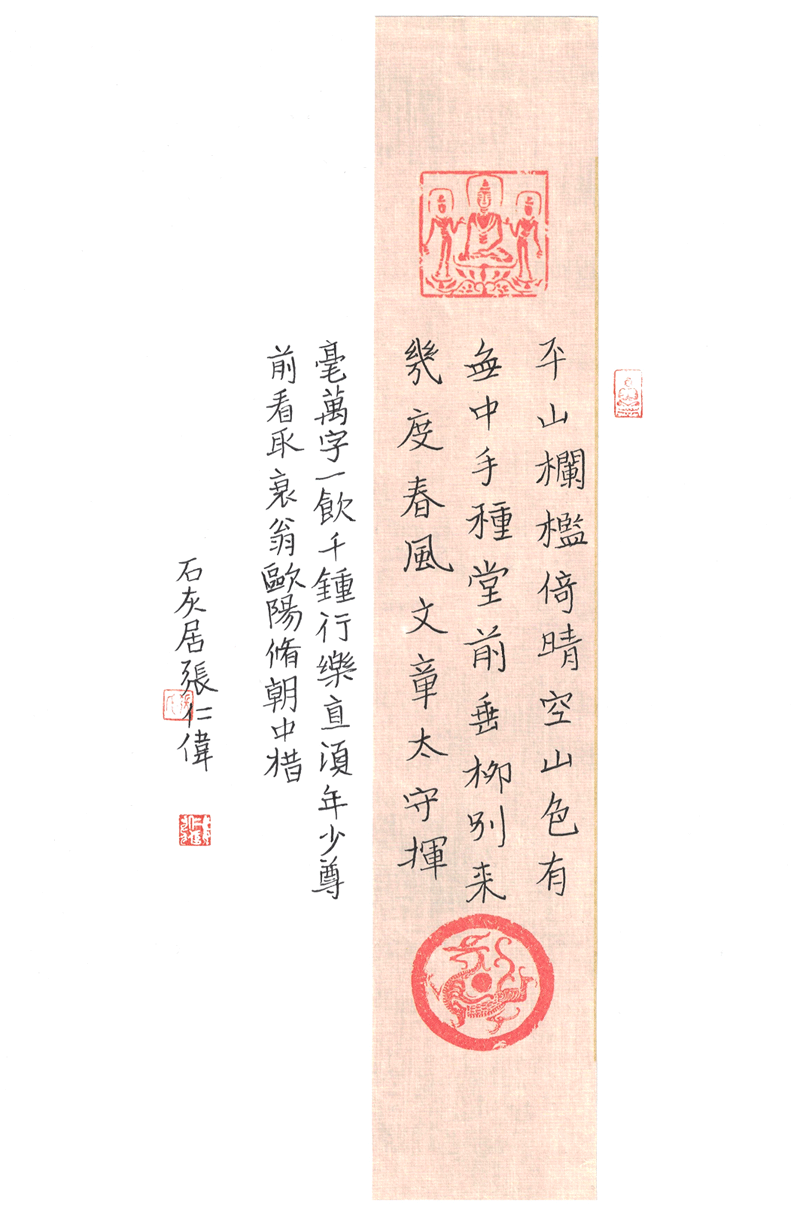 平山欄檻倚晴空山色有
無中手種堂前垂柳別来
幾度春風文章太守揮
毫萬字一飲千鍾行樂直須年少尊
前看取衰翁歐陽脩朝中措
石灰居張仁偉